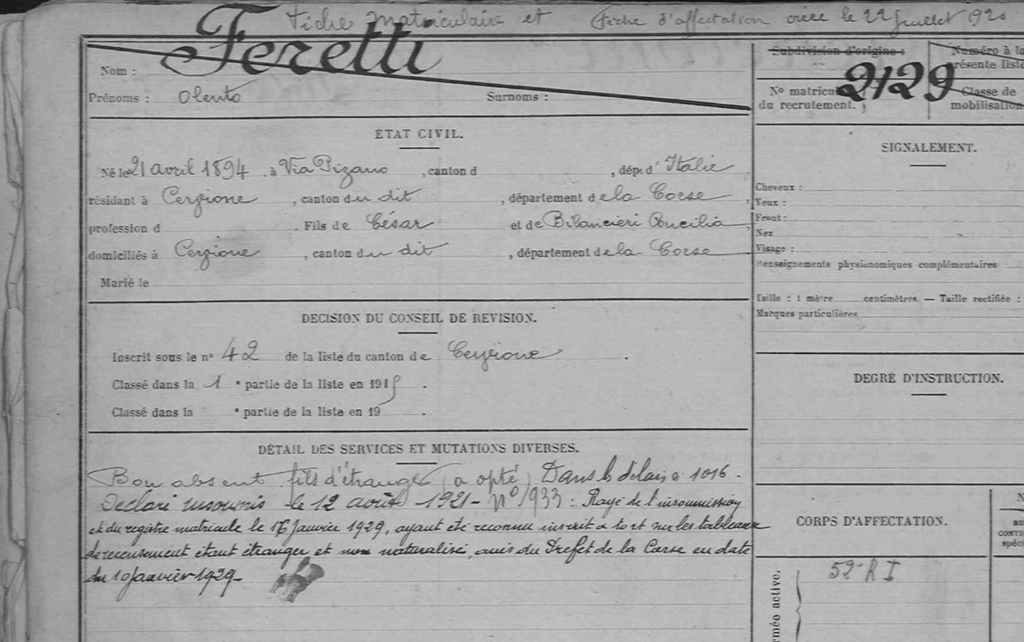 Fiche Matriculaire et Fiche d'affectation créée le 22 Juillet 1920
Feretti
Nom :
Prénoms : Olento Surnoms :
ÉTAT CIVIL.
Né le 21 avril 1894, à Via Pizano, canton d , dép. d'Italie
résidant à Cergione, canton du dit, département de la Corse,
profession d . Fils de César et de Bilancieri
domiciliés à Cergione, canton du dit, département de la Corse
Marié le
DÉCISION DU CONSEIL DE REVISION.
Inscrit sous le n° 42 de la liste du canton de Cergione.
Classé dans la 1 e partie de la liste en 1915.
Classé dans la e partie de la liste en 19 .
DÉTAIL DES SERVICES ET MUTATIONS DIVERSES.
Bon absent fils d'étranger (a opté) Dans le délai
Déclaré insoumis le 12 août 1921 - N° 1933 : Rayé de l'insoumission
et du registre matricule le 16 Janvier 1929, ayant été reconnu inscrit à tort sur les tableaux
de recensement étant étranger et non naturalisé, avis du Préfet de la Corse en date
du 10 Janvier 1929.
Subdivision d'origine :
N° matricule
du recrutement.
2129
Numéro à la
présente liste
Classe de
mobilisation
SIGNALEMENT.
Cheveux :
Yeux :
Front :
Nez
Visage :
Renseignements physionomiques complémentaires
Taille : 1 mètre centimètres. — Taille rectifiée :
Marques particulières
DEGRÉ D'INSTRUCTION.
CORPS D'AFFECTATION.
52e R I
armée active.